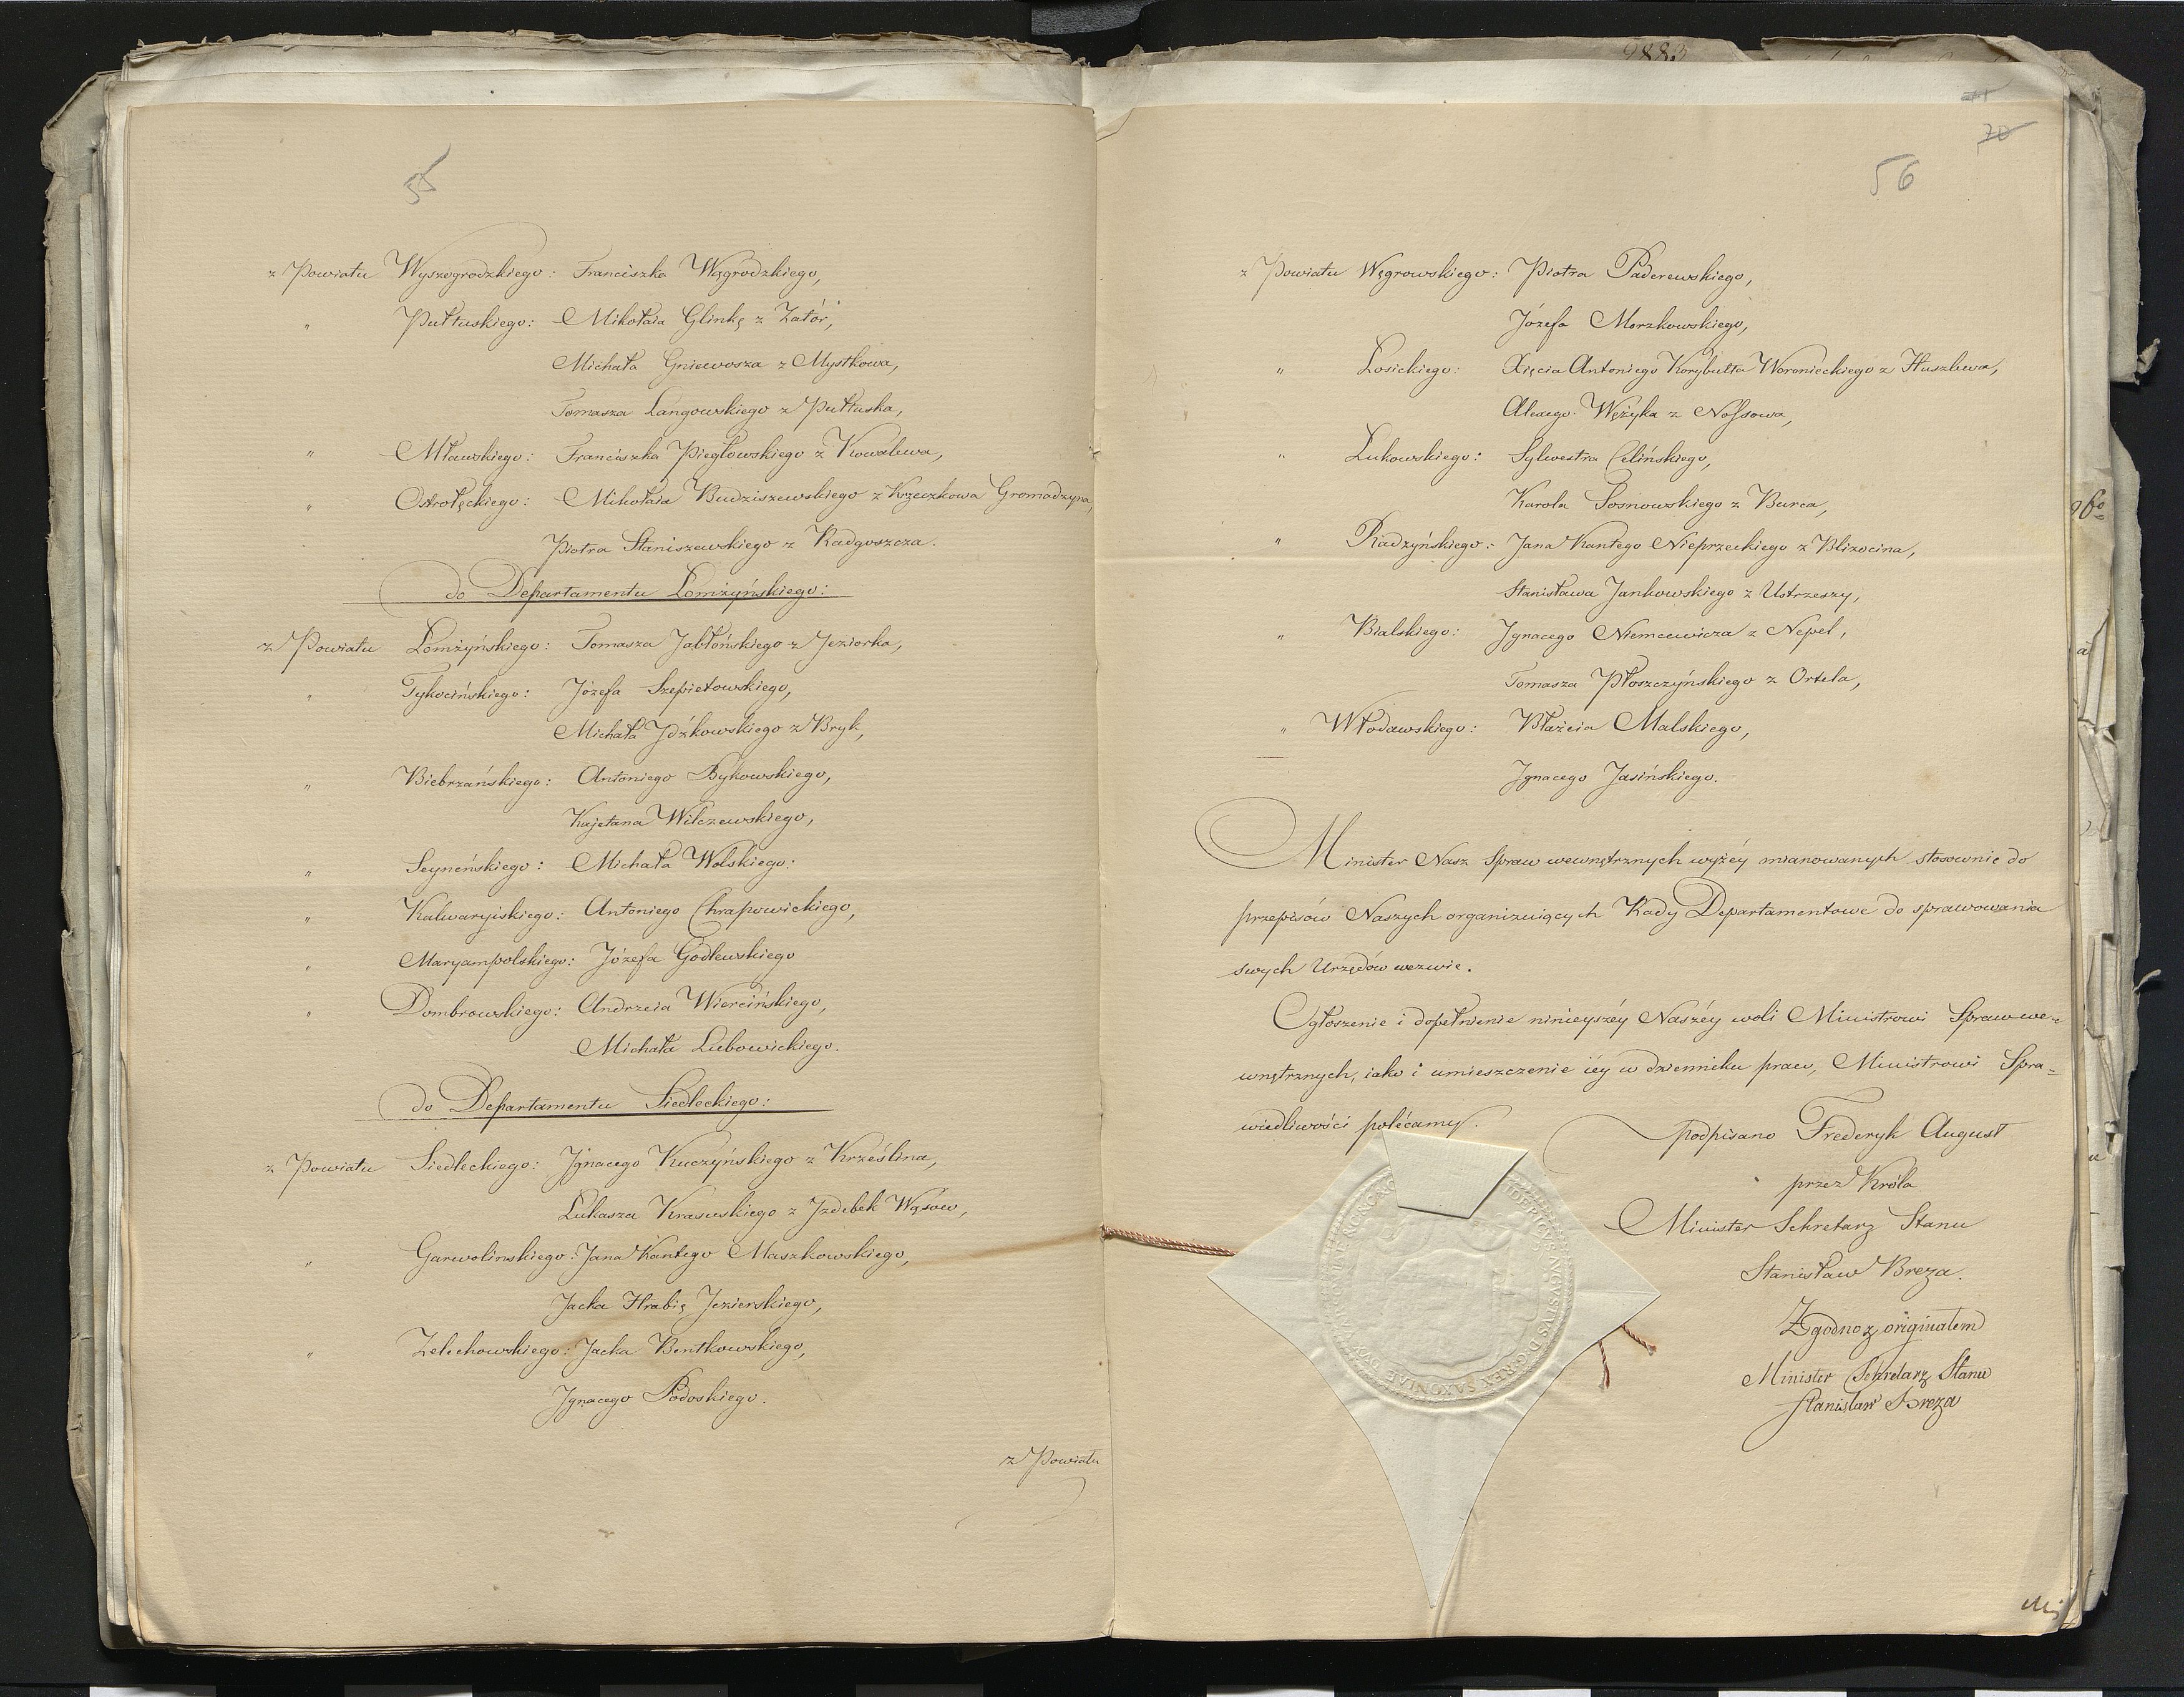 55
z Powiatu Wyszogrodzkiego: Franciszka Wągrodzkiego,
" Pułtuskiego: Mikołaia Glinkę z Zatór,
Michała Gniewosza z Mystkowa,
Tomasza Langowskiego z Pułtuska,
" Mławskiego: Franciszka Piegłowskiego z Kowalewa,
" Ostrołęckiego: Mikołaia Budziszewskiego z Krzeczkowa Gromadzyna,
Piotra Staniszewskiego z Radgoszcza.
do Departamentu Łomżyńskiego:
z Powiatu Łomżyńskiego: Tomasza Jabłońskiego z Jeziorka,
" Tykocińskiego: Józefa Szepietowskiego,
Michała Jdźkowskiego z Bryk,
" Biebrzańskiego: Antoniego Bykowskiego,
Kajetana Wilczewskiego,
" Seyneńskiego: Michała Wolskiego:
" Kalwaryiskiego: Antoniego Chrapowickiego,
" Maryampolskiego: Józefa Godlewskiego
" Dombrowskiego: Andrzeia Wiercińskiego,
Michała Lubowickiego.
do Departamentu Siedleckiego:
z Powiatu Siedleckiego: Jgnacego Kuczyńskiego z Krześlina,
Łukasza Krasuskiego z Jzdebek Wąsów,
" Garwolinskiego: Jana Kantego Maszkowskiego,
Jacka Hrabię Jezierskiego,
" Zelechowskiego: Jacka Bentkowskiego,
Jgnacego Podoskiego.
z Powiatu
9883
70
56
z Powiatu Węgrowskiego: Piotra Paderewskiego,
Józefa Morzkowskiego,
" Łosickiego: Xięcia Antoniego Korybutta Woronieckiego z Huszlewa,
Alexego Wężyka z Nossowa,
" Łukowskiego: Sylwestra Celińskiego,
Karola Sosnowskiego z Burca,
" Radzyńskiego: Jana Kantego Nieprzeckiego z Blizocina,
Stanisława Jankowskiego z Ustrzeszy,
" Bialskiego: Jgnacego Niemcewicza z Nepel,
Tomasza Płoszczyńskiego z Ortela,
" Włodawskiego: Błażeia Malskiego,
Jgnacego Jasińskiego.
Minister Nasz Spraw wewnętrznych wyżéy mianowanych stosownie do
przepisów Naszych organizuiących Rady Departamentowe do sprawowania
swych Urzędów wezwie.
Ogłoszenie i dopełnienie ninieyszéy Naszéy woli Ministrowi Spraw we-
wnętrznych, iako i umieszczenie iéy w dzienniku praw, Ministrowi Spra=
wiedliwości polécamy.
podpisano Frederyk August
przez Króla
Minister Sekretarz Stanu
Stanisław Breza.
Zgodno z originałem
Minister Sekretarz Stanu
Stanisław Breza
AVGVSTVS D.G.REX SAXONIAE DVX